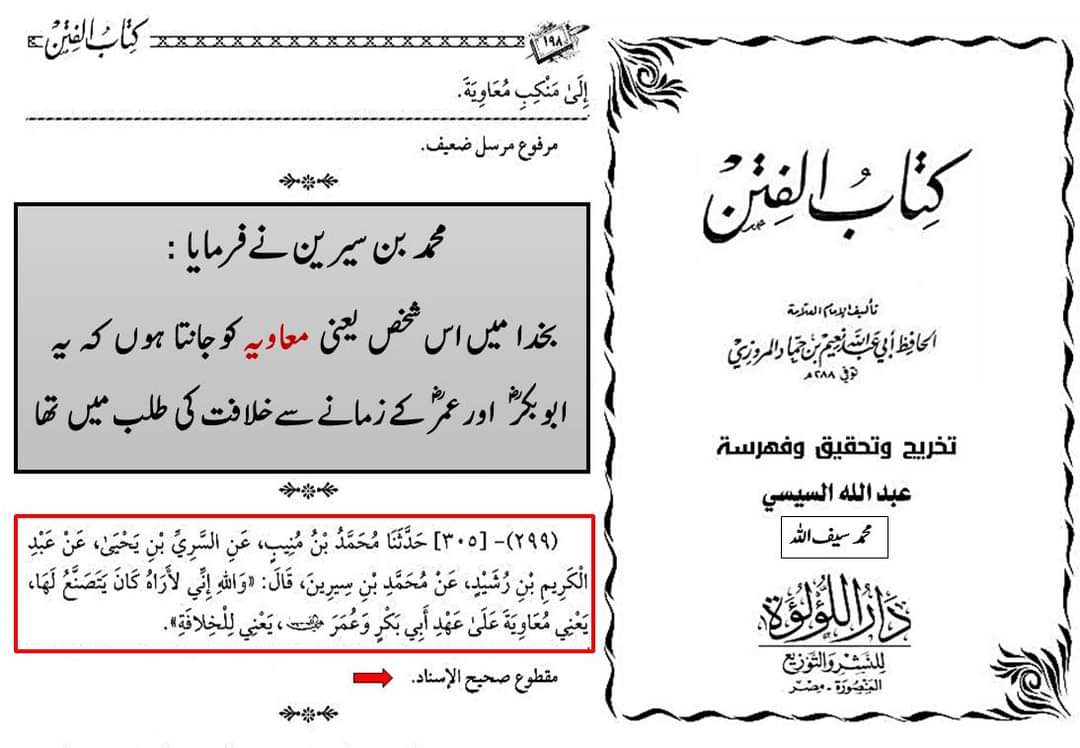 كتاب الفتن
١٩٨
إِلَىٰ مَنْكِبِ مُعَاوِيَةَ.
مرفوع مرسل ضعيف.
محمد بن سیرین نے فرمایا :
بخدا میں اس شخص یعنی معاویہ کو جانتا ہوں کہ یہ
ابو بکرؓ اور عمرؓ کے زمانے سے خلافت کی طلب میں تھا
(٢٩٩)- [٣٠٥] حَدَّثَنَا مُحَمَّدُ بْنُ مُنِيبٍ، عَنِ السَّرِيِّ بْنِ يَحْيَىٰ، عَنْ عَبْدِ
الْكَرِيمِ بْنِ رُشَيْدٍ، عَنْ مُحَمَّدِ بْنِ سِيرِينَ، قَالَ: «وَاللهِ إِنِّي لأَرَاهُ كَانَ يَتَصَنَّعُ لَهَا،
يَعْنِي مُعَاوِيَةَ عَلَىٰ عَهْدِ أَبِي بَكْرٍ وَعُمَرَ ، يَعْنِي لِلْخِلافَةِ».
مقطوع صحيح الإسناد.
كتاب الفتن
تأليف الإمام العلامة
الحافظ أبي عبد الله نعيم بن حماد المروزي
توفي ٢٨٨هـ
تخريج وتحقيق وفهرسة
عبد الله السيسي
محمد سیف اللہ
دار اللؤلؤة
للنشر والتوزيع
المنصورة - مصر